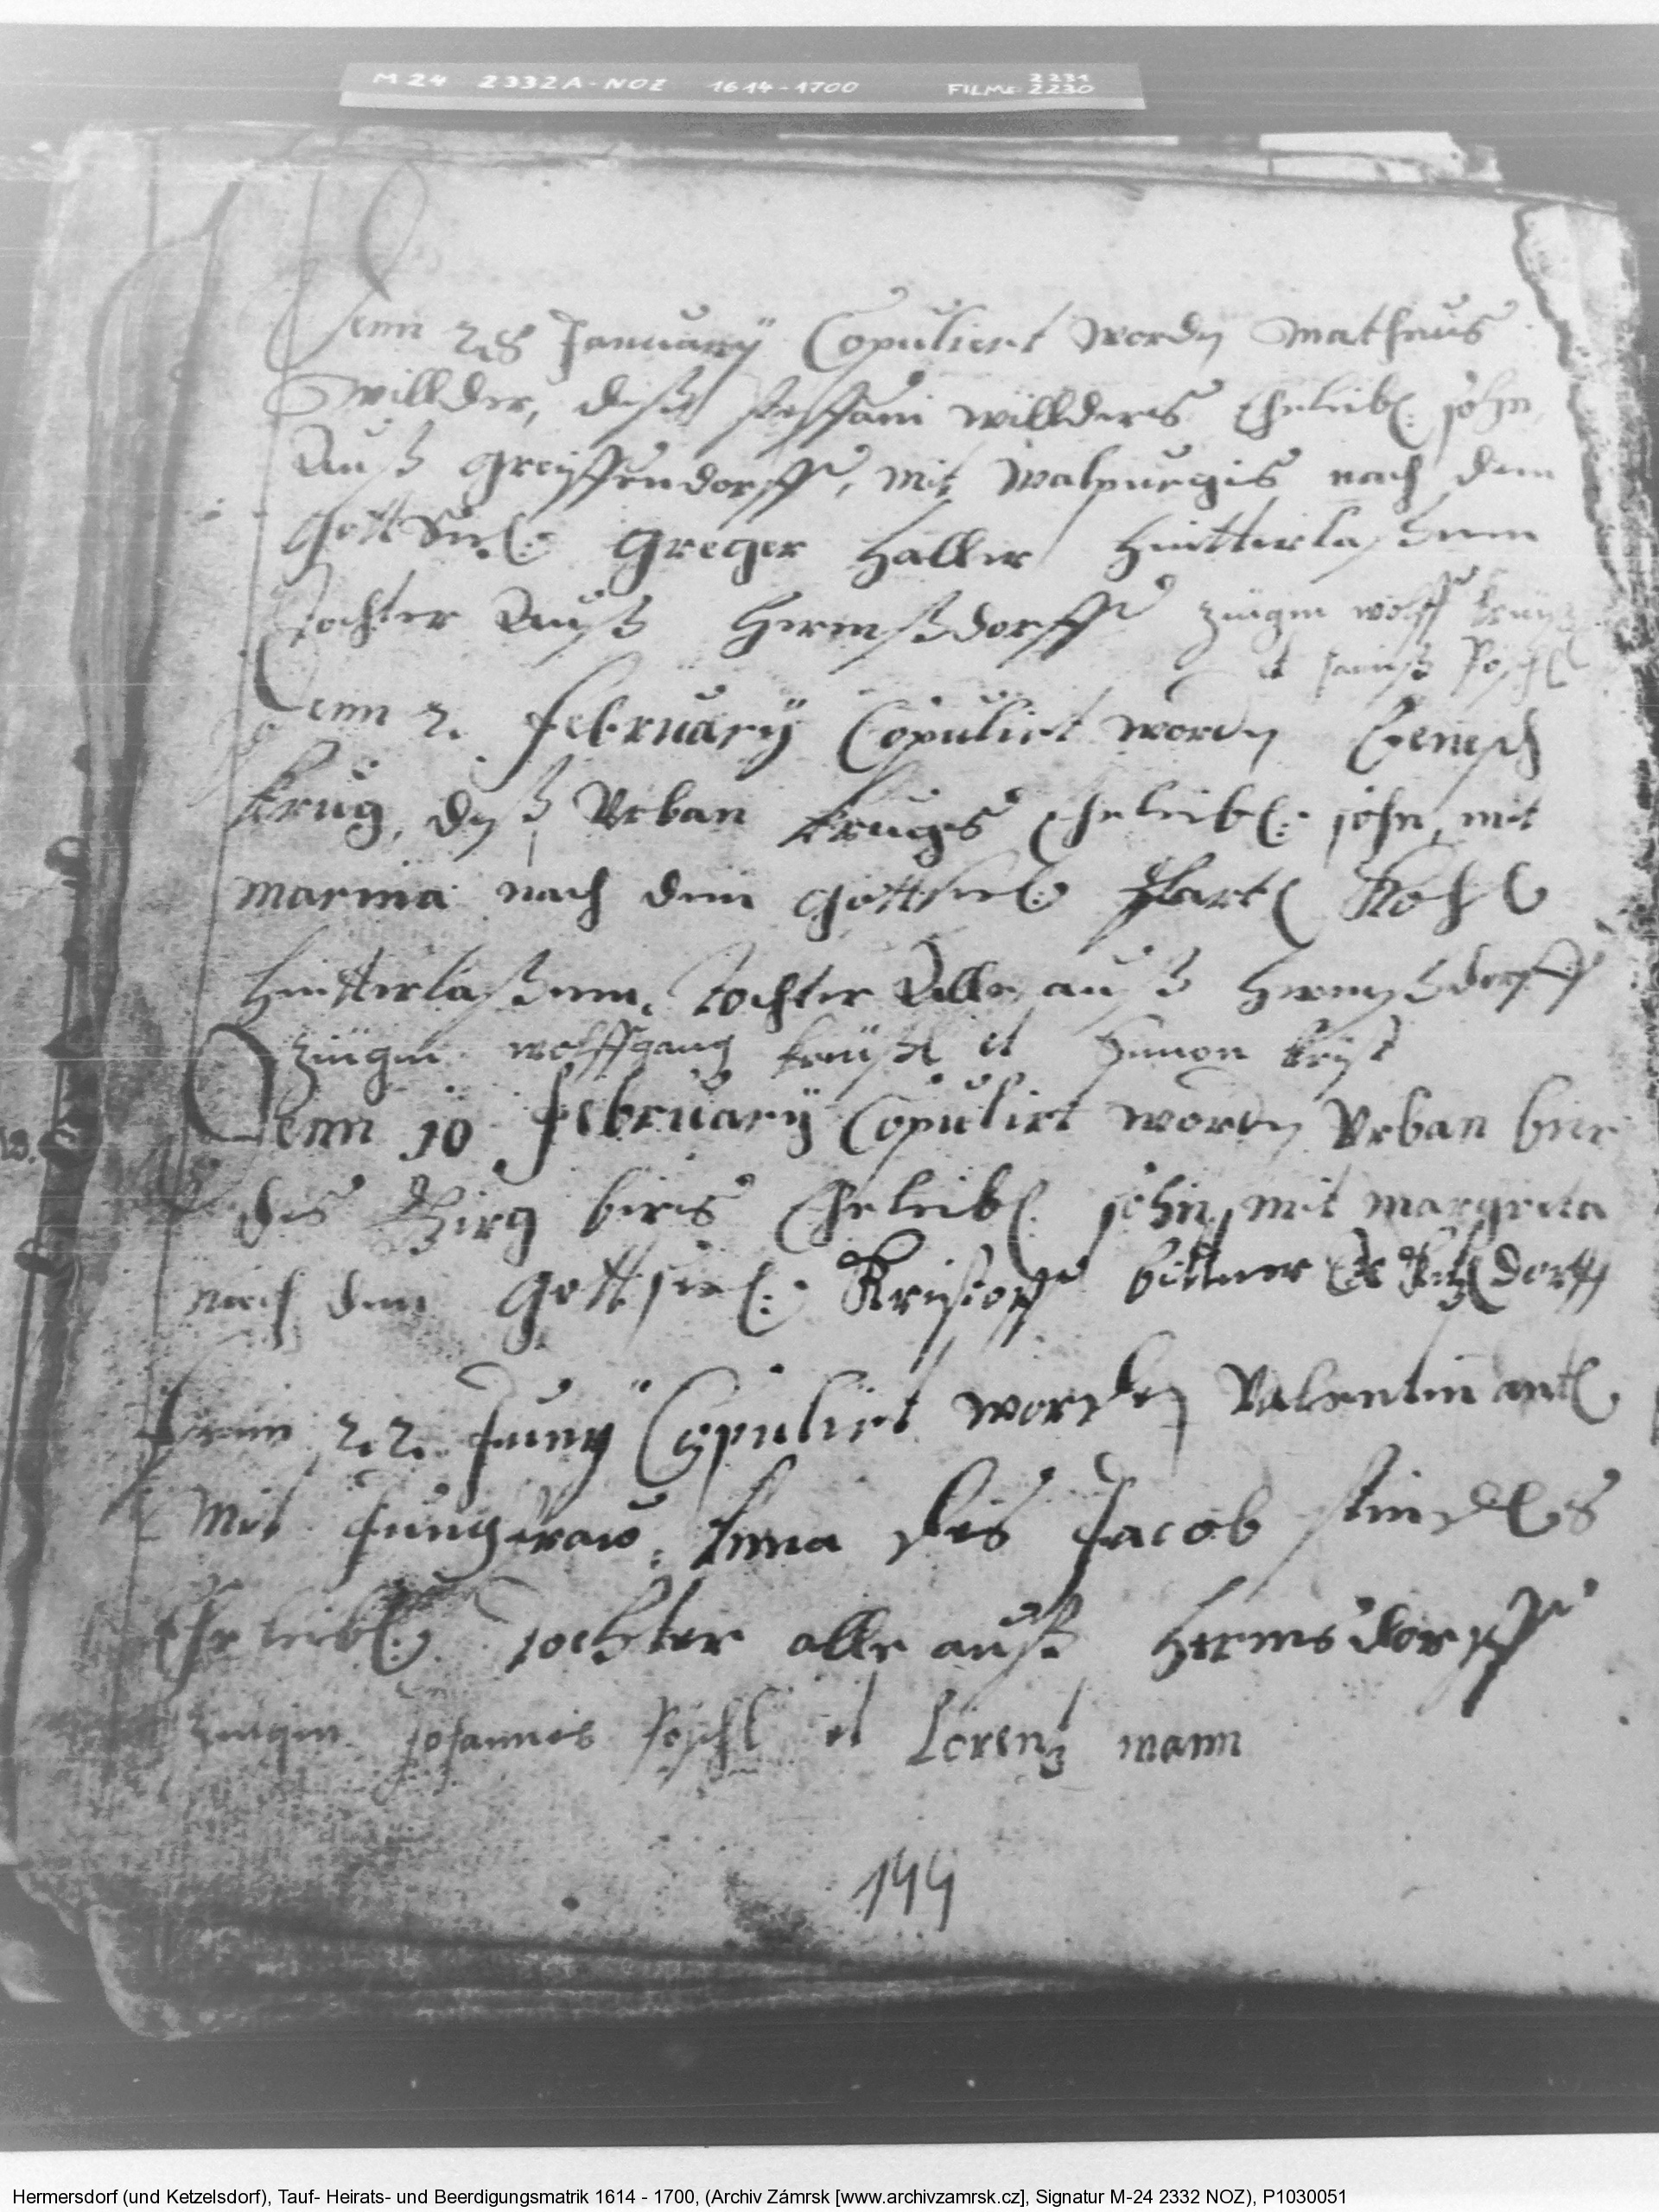 M 24 2332A-NOZ 1614-1700 FILME 2231 2230
Denn 28 January Copuliert wordn Matheus
Willder, deß steffani willders Eheleibl: sohn
Auß Greyffendorff, mit Walpurgis nach dem
Gottseel: Greger Haller hintterlaßenen
Tochter Auß Hermßdorff zeugen wolff
et Hanß Pöschl
Denn 2. February Copulirt wordn
Krug, deß Urban Kruges Eheleibl: sohn, mit
marina nach dem Gottseel:
hintterlaßenen Tochter Alle auß Hermßdorff
zeugen wolffgang et Simon
Denn 10 February Copulirt wordn Urban bier
des Girg birs Eheleibl: sohn, mit margreta
nach dem Gottseel: Kristoff bittner dorff
Denn 22. Juny Copulirt worden Valentin antl
Mit Jungkraw: Anna des Jacob
Eheleibl: Tochter alle auß Hermsdorff
zeugen Johannes Pöschl et Lorentz mann
144
Hermersdorf (und Ketzelsdorf), Tauf- Heirats- und Beerdigungsmatrik 1614 - 1700, (Archiv Zámrsk [www.archivzamrsk.cz], Signatur M-24 2332 NOZ), P1030051